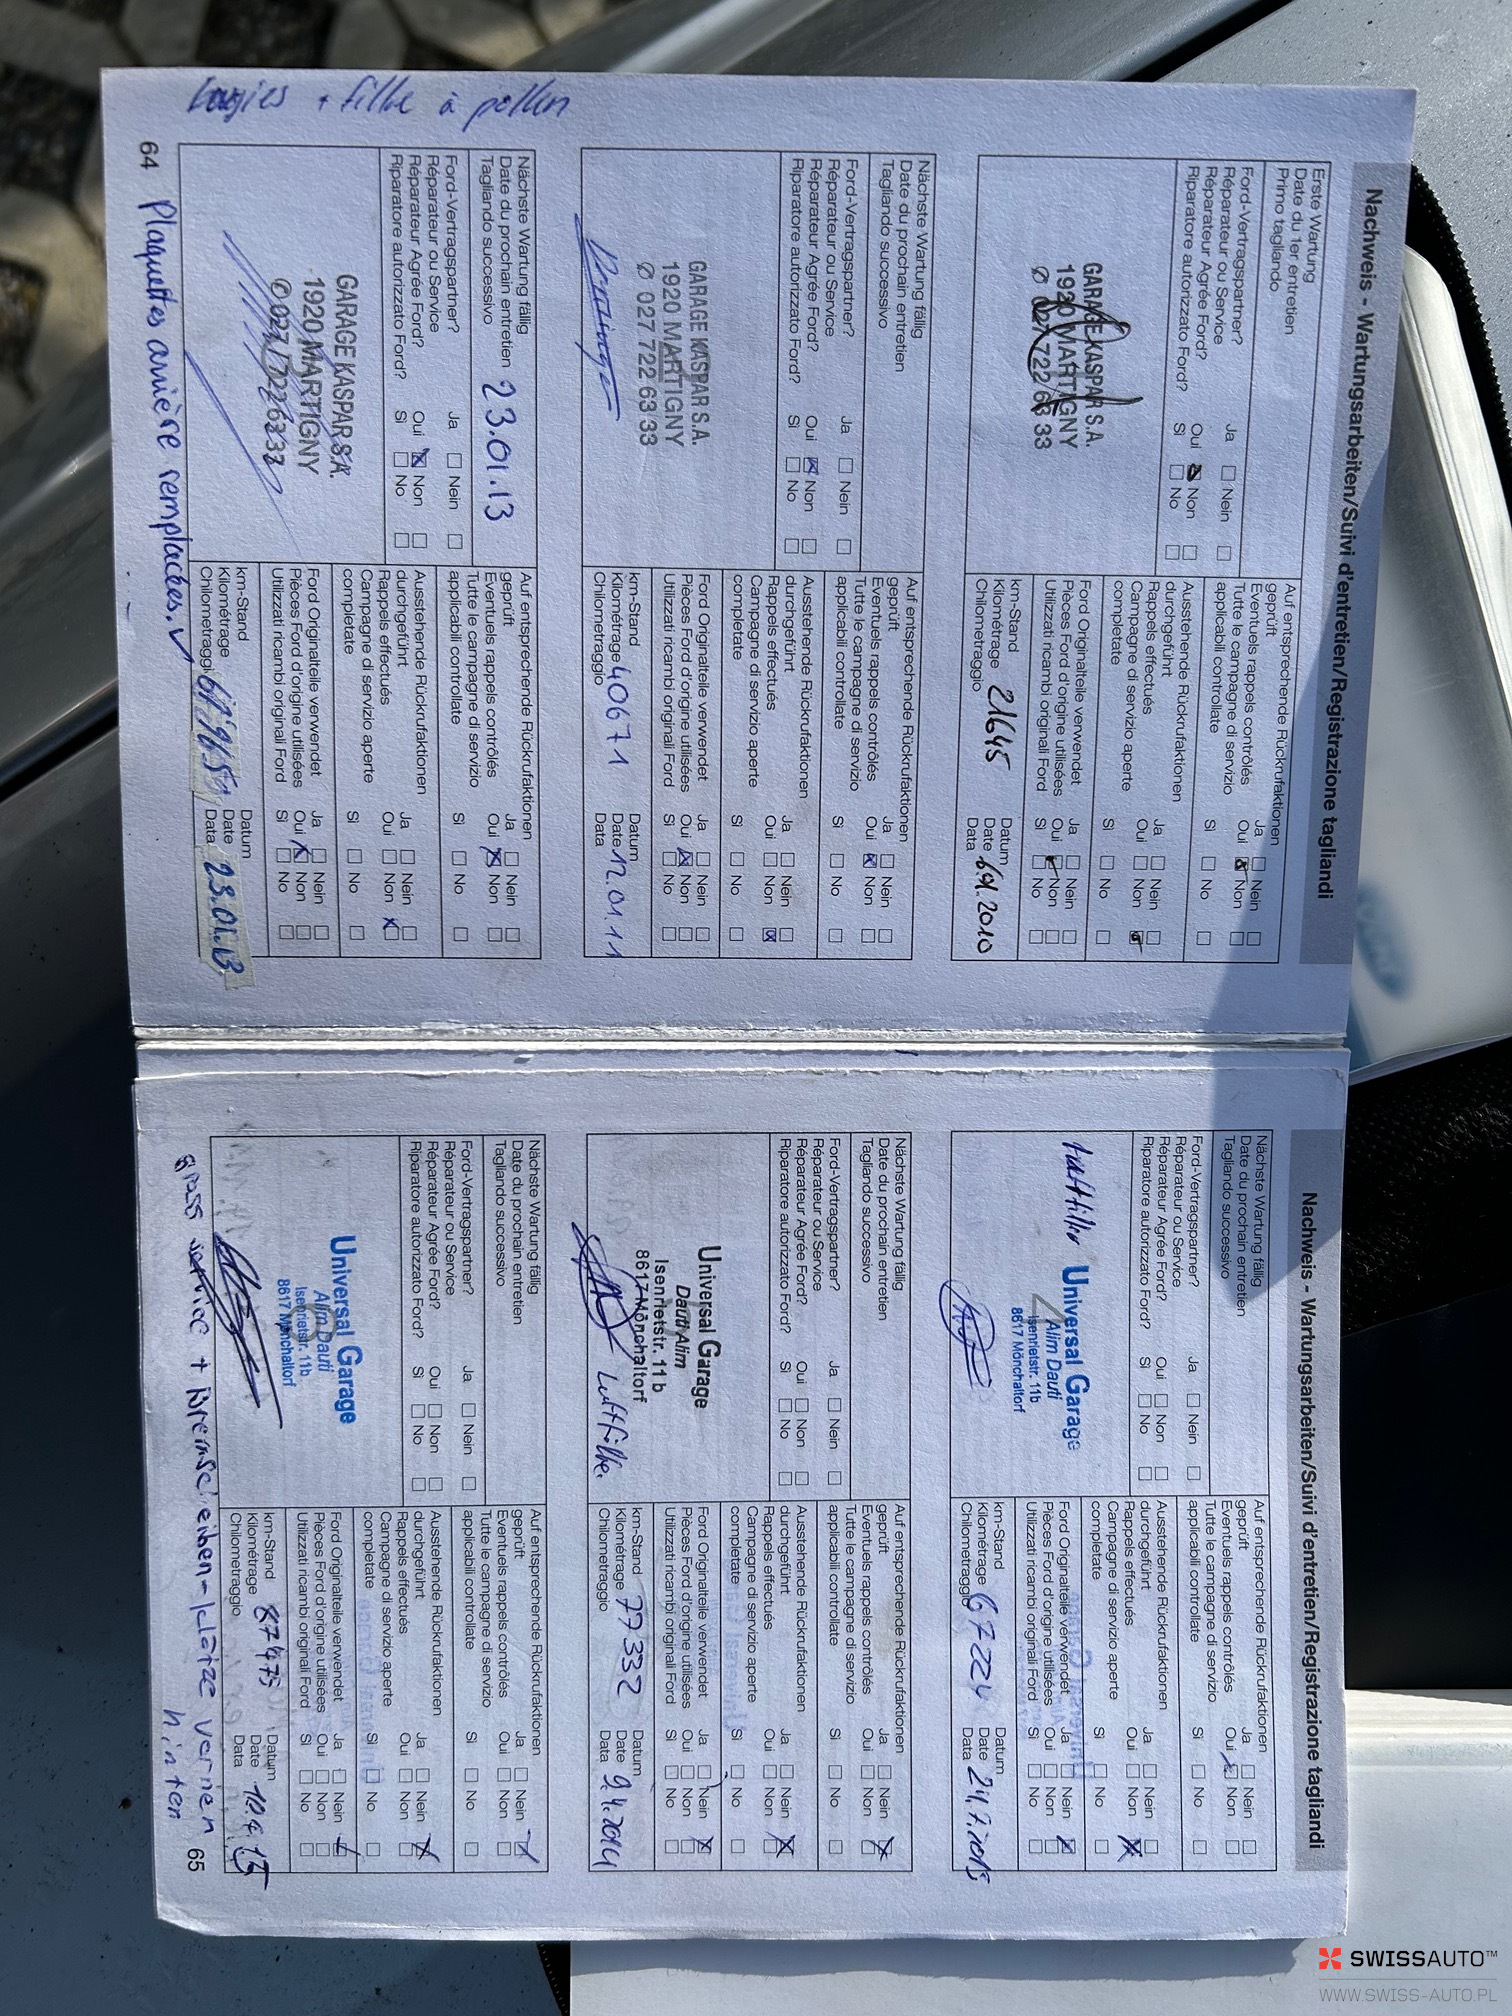 Nachweis - Wartungsarbeiten/Suivi d'entretien/Registrazione tagliandi
Erste Wartung
Date du 1er entretien
Primo tagliando
Ford-Vertragspartner?
Réparateur ou Service
Réparateur Agrée Ford?
Riparatore autorizzato Ford?
Ja Nein
Oui Non
Sì No
GARAGE KASPAR S.A.
1920 MARTIGNY
Ø 027 722 63 33
Auf entsprechende Rückrufaktionen
geprüft
Eventuels rappels contrôlés
Tutte le campagne di servizio
applicabili controllate
Ja Nein
Oui Non
Sì No
Ausstehende Rückrufaktionen
durchgeführt
Rappels effectués
Campagne di servizio aperte
completate
Ja Nein
Oui Non
Sì No
Ford Originalteile verwendet
Pièces Ford d'origine utilisées
Utilizzati ricambi originali Ford
Ja Nein
Oui Non
Sì No
km-Stand
Kilométrage 21645
Chilometraggio
Datum
Date 2010
Data
Nächste Wartung fällig
Date du prochain entretien
Tagliando successivo
Ford-Vertragspartner?
Réparateur ou Service
Réparateur Agrée Ford?
Riparatore autorizzato Ford?
Ja Nein
Oui Non
Sì No
GARAGE KASPAR S.A.
1920 MARTIGNY
Ø 027 722 63 33
Auf entsprechende Rückrufaktionen
geprüft
Eventuels rappels contrôlés
Tutte le campagne di servizio
applicabili controllate
Ja Nein
Oui Non
Sì No
Ausstehende Rückrufaktionen
durchgeführt
Rappels effectués
Campagne di servizio aperte
completate
Ja Nein
Oui Non
Sì No
Ford Originalteile verwendet
Pièces Ford d'origine utilisées
Utilizzati ricambi originali Ford
Ja Nein
Oui Non
Sì No
km-Stand
Kilométrage 40671
Chilometraggio
Datum
Date 12.01.11
Data
Nächste Wartung fällig
Date du prochain entretien 23.01.13
Tagliando successivo
Ford-Vertragspartner?
Réparateur ou Service
Réparateur Agrée Ford?
Riparatore autorizzato Ford?
Ja Nein
Oui Non
Sì No
GARAGE KASPAR S.A.
1920 MARTIGNY
✆ 027 722 63 33
Auf entsprechende Rückrufaktionen
geprüft
Eventuels rappels contrôlés
Tutte le campagne di servizio
applicabili controllate
Ja Nein
Oui Non
Sì No
Ausstehende Rückrufaktionen
durchgeführt
Rappels effectués
Campagne di servizio aperte
completate
Ja Nein
Oui Non
Sì No
Ford Originalteile verwendet
Pièces Ford d'origine utilisées
Utilizzati ricambi originali Ford
Ja Nein
Oui Non
Sì No
km-Stand
Kilométrage
Chilometraggio
Datum
Date 23.01.13
Data
64 Plaquettes arrière remplacées. ✓
+ filtre à pollen
Nachweis - Wartungsarbeiten/Suivi d'entretien/Registrazione tagliandi
Nächste Wartung fällig
Date du prochain entretien
Tagliando successivo
Ford-Vertragspartner?
Réparateur ou Service
Réparateur Agrée Ford?
Riparatore autorizzato Ford?
Ja Nein
Oui Non
Sì No
Luftfilter
Universal Garage
Alim Dauti
Isenrietstr. 11b
8617 Mönchaltorf
Auf entsprechende Rückrufaktionen
geprüft
Eventuels rappels contrôlés
Tutte le campagne di servizio
applicabili controllate
Ja Nein
Oui Non
Sì No
Ausstehende Rückrufaktionen
durchgeführt
Rappels effectués
Campagne di servizio aperte
completate
Ja Nein
Oui Non
Sì No
Ford Originalteile verwendet
Pièces Ford d'origine utilisées
Utilizzati ricambi originali Ford
Ja Nein
Oui Non
Sì No
km-Stand
Kilométrage 67224
Chilometraggio
Datum
Date 24.7.2013
Data
Nächste Wartung fällig
Date du prochain entretien
Tagliando successivo
Ford-Vertragspartner?
Réparateur ou Service
Réparateur Agrée Ford?
Riparatore autorizzato Ford?
Ja Nein
Oui Non
Sì No
Universal Garage
Dauti Alim
Isenrietstr. 11b
8617 Mönchaltorf
Luftfilter
Auf entsprechende Rückrufaktionen
geprüft
Eventuels rappels contrôlés
Tutte le campagne di servizio
applicabili controllate
Ja Nein
Oui Non
Sì No
Ausstehende Rückrufaktionen
durchgeführt
Rappels effectués
Campagne di servizio aperte
completate
Ja Nein
Oui Non
Sì No
Ford Originalteile verwendet
Pièces Ford d'origine utilisées
Utilizzati ricambi originali Ford
Ja Nein
Oui Non
Sì No
km-Stand
Kilométrage 77332
Chilometraggio
Datum
Date 9.4.2014
Data
Nächste Wartung fällig
Date du prochain entretien
Tagliando successivo
Ford-Vertragspartner?
Réparateur ou Service
Réparateur Agrée Ford?
Riparatore autorizzato Ford?
Ja Nein
Oui Non
Sì No
Universal Garage
Alim Dauti
Isenrietstr. 11b
8617 Mönchaltorf
Auf entsprechende Rückrufaktionen
geprüft
Eventuels rappels contrôlés
Tutte le campagne di servizio
applicabili controllate
Ja Nein
Oui Non
Sì No
Ausstehende Rückrufaktionen
durchgeführt
Rappels effectués
Campagne di servizio aperte
completate
Ja Nein
Oui Non
Sì No
Ford Originalteile verwendet
Pièces Ford d'origine utilisées
Utilizzati ricambi originali Ford
Ja Nein
Oui Non
Sì No
km-Stand
Kilométrage 87475
Chilometraggio
Datum
Date 10.4.15
Data
service + Bremscheiben-klötze vornen 65
hinten
SWISSAUTO™
WWW.SWISS-AUTO.PL